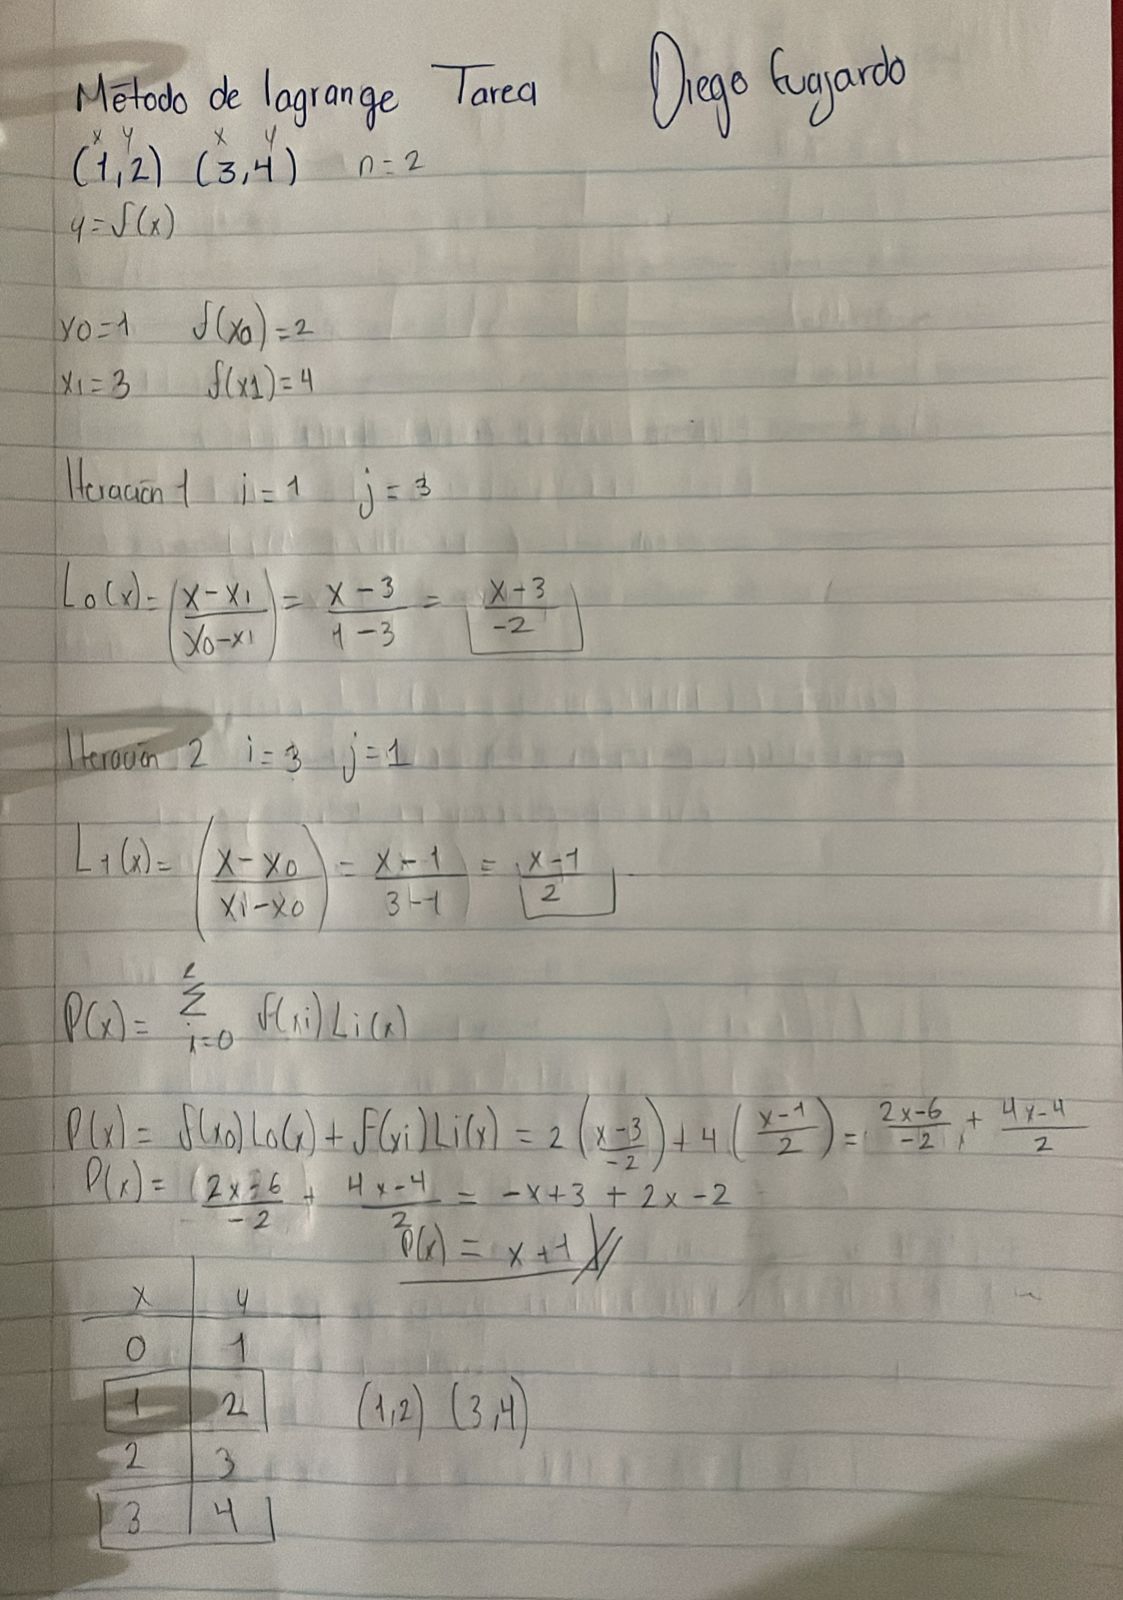 Método de lagrange Tarea Diego Guajardo
x y x y
(1,2) (3,4) n=2
y=f(x)
x0=1 f(x0)=2
x1=3 f(x1)=4
Iteración 1 i=1 j=3
L0(x)=(x-x1/x0-x1)=x-3/1-3=x+3/-2
Iteración 2 i=3 j=1
L1(x)=(x-x0/x1-x0)=x-1/3-1=x-1/2
P(x)=Σ i=0 f(xi)Li(x)
P(x)=f(x0)L0(x)+f(xi)Li(x)=2(x-3/-2)+4(x-1/2)=2x-6/-2+4x-4/2
P(x)=2x-6/-2+4x-4/2=-x+3+2x-2
P(x)=x+1
x y
0 1
1 2 (1,2) (3,4)
2 3
3 4